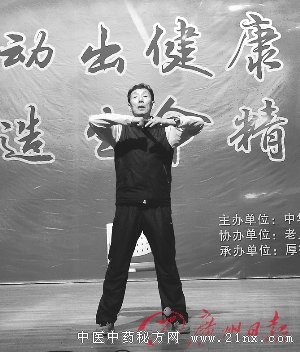 动出健康
造生命精
主办单位：中华
协办单位：老人
承办单位：厚
广州日报
中医中药秘方网
www.21nx.com